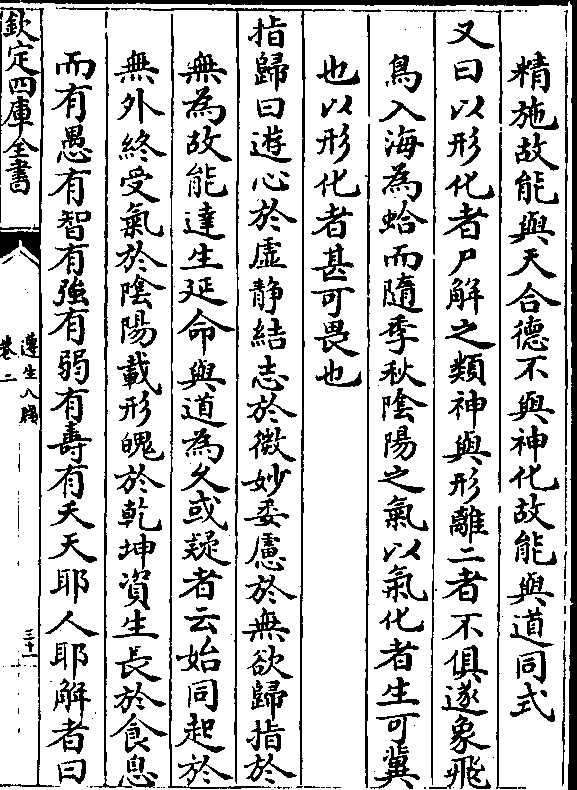 精施故能與天合德不與神化故能與道同式
又曰以形化者尸解之類神與形離二者不俱遂象飛
鳥入海為蛤而隨季秋陰陽之氣以氣化者生可冀
也以形化者甚可畏也
指歸曰遊心於虛静結志於微妙委慮於無欲歸指於
無為故能達生延命與道為久或疑者云始同起於
無外終受氣於陰陽載形魄於乾坤資生長於食息
而有愚有智有強有弱有壽有夭天耶人耶解者曰
欽定四庫全書
遵生八牋
卷二
三十一